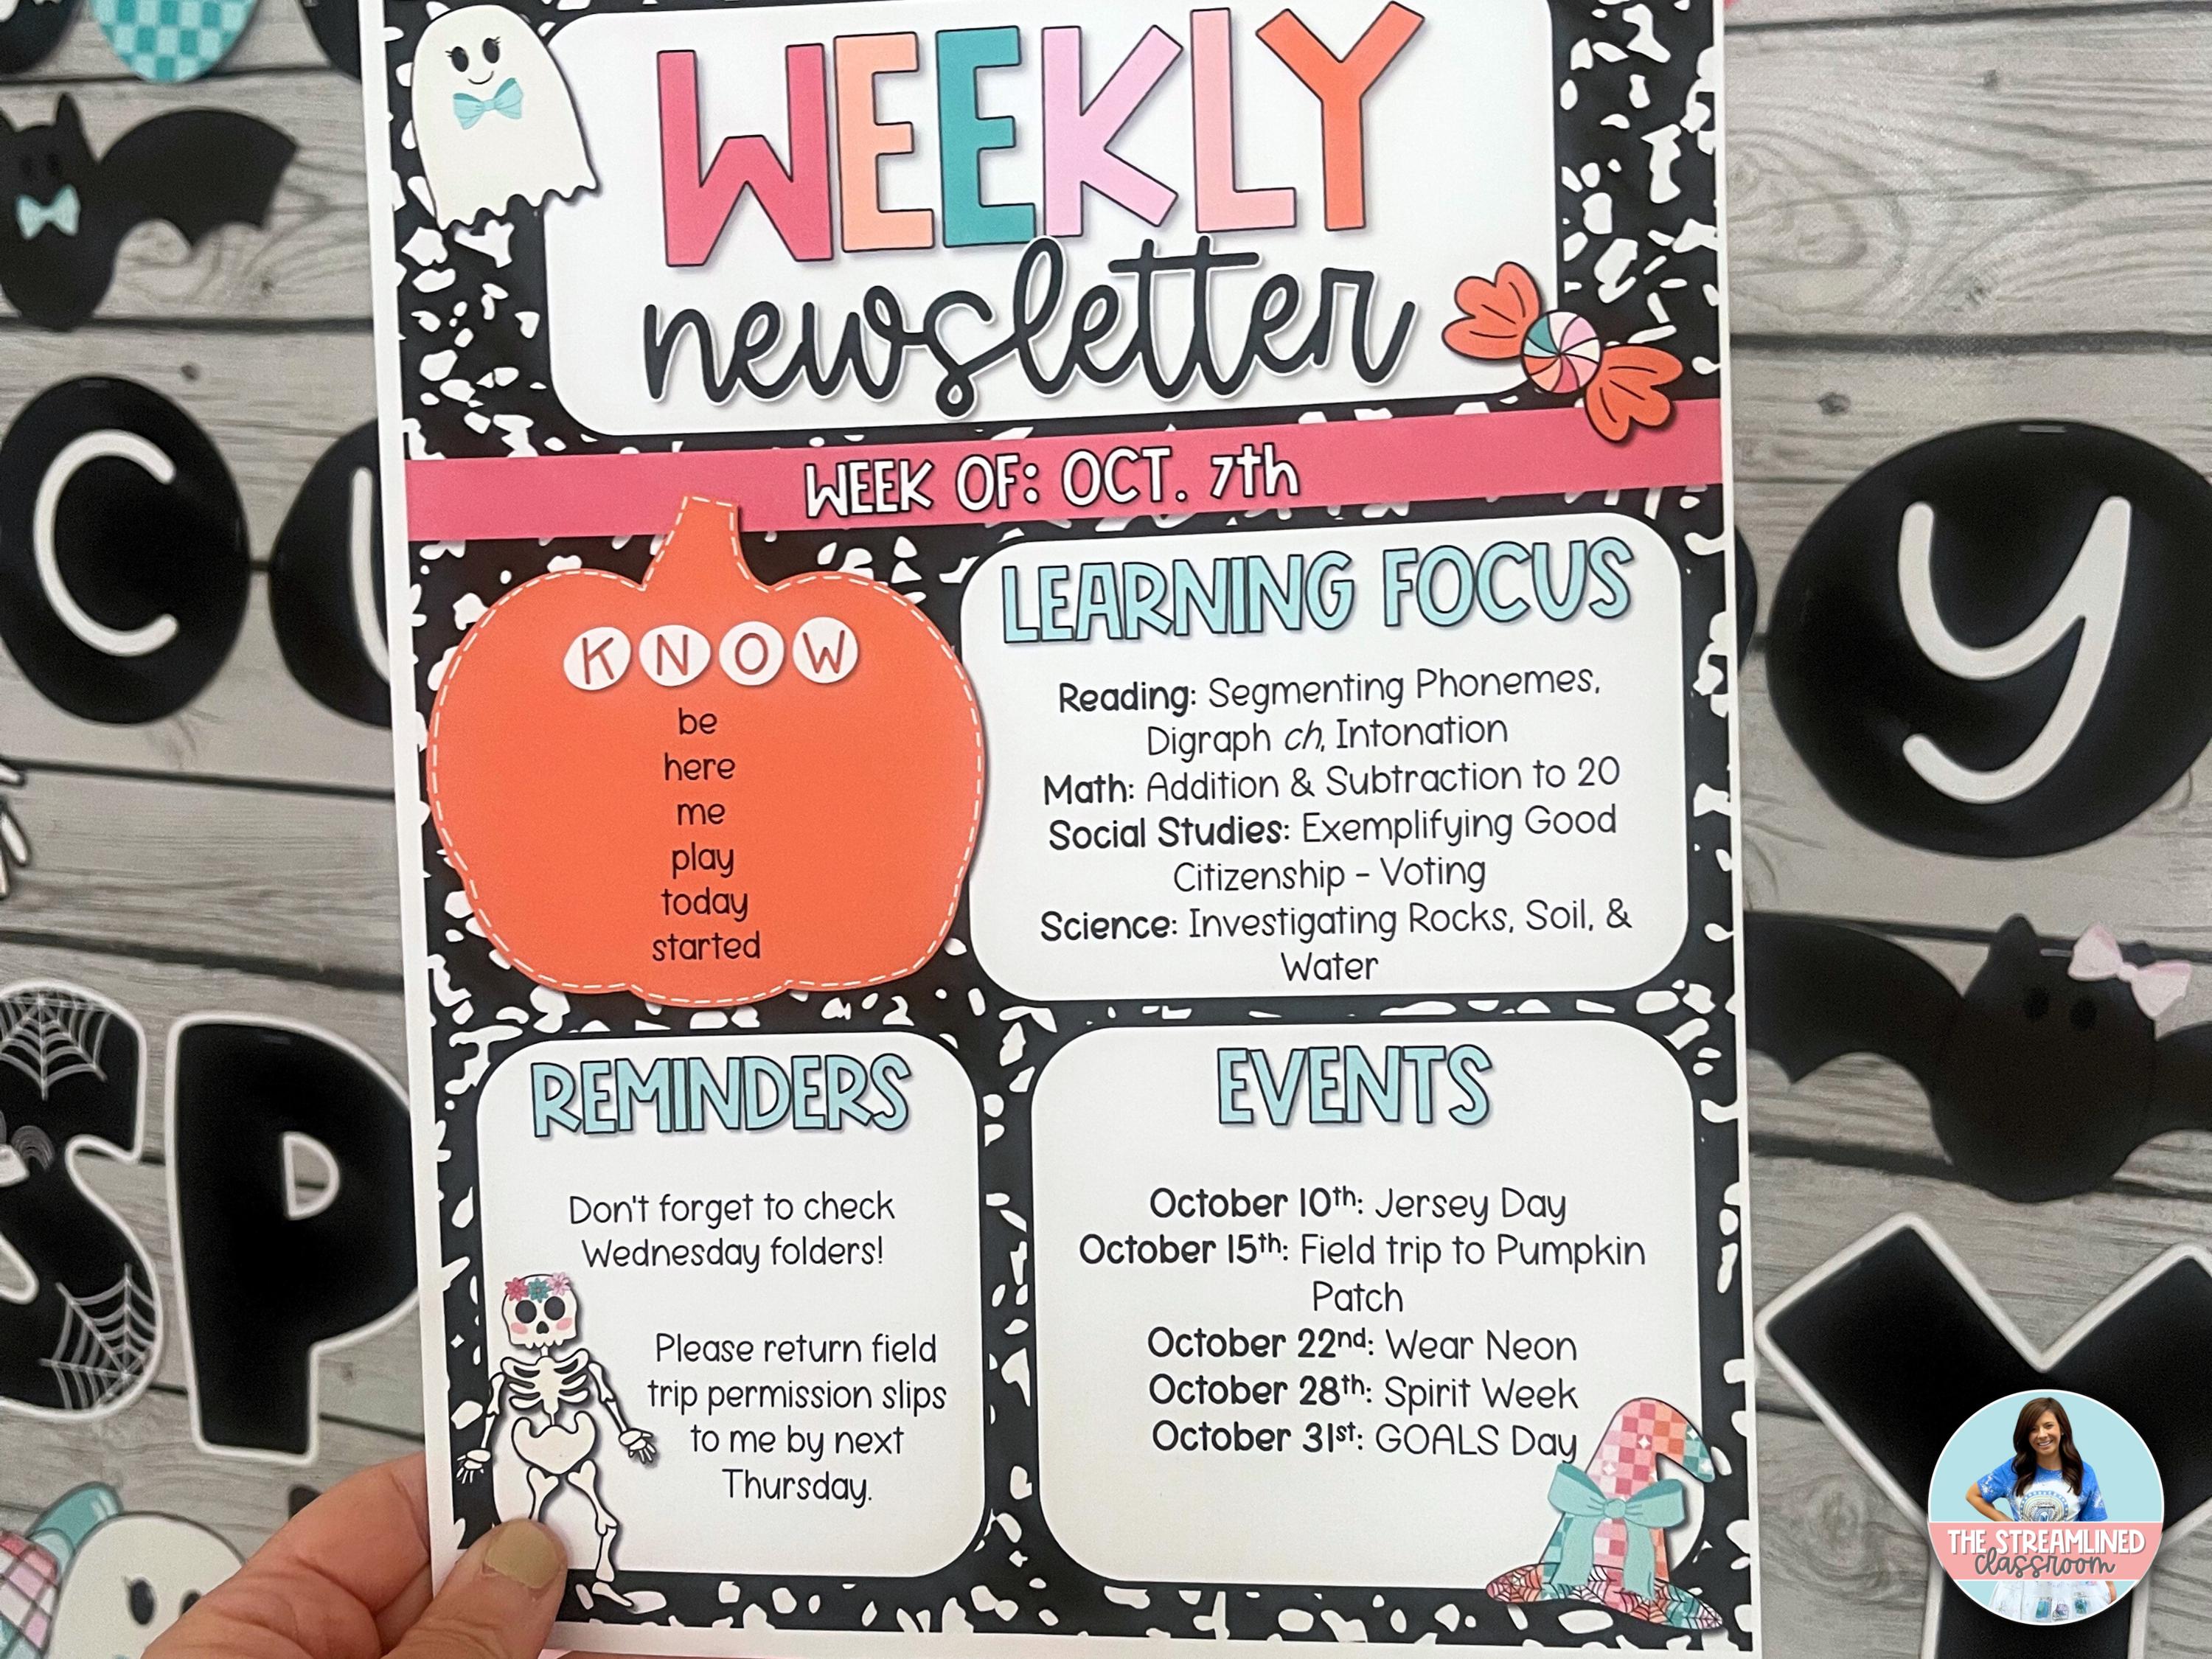 WEEKLY
newsletter
WEEK OF: OCT. 7th
KNOW
be
here
me
play
today
started
LEARNING FOCUS
Reading: Segmenting Phonemes,
Digraph ch, Intonation
Math: Addition & Subtraction to 20
Social Studies: Exemplifying Good
Citizenship - Voting
Science: Investigating Rocks, Soil, &
Water
REMINDERS
Don't forget to check
Wednesday folders!
Please return field
trip permission slips
to me by next
Thursday.
EVENTS
October 10th: Jersey Day
October 15th: Field trip to Pumpkin
Patch
October 22nd: Wear Neon
October 28th: Spirit Week
October 31st: GOALS Day
C
y
SP
Y
THE STREAMLINED
classroom